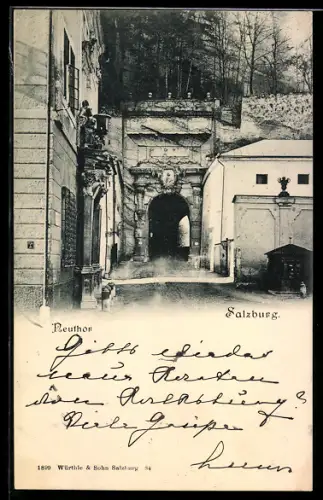 Neuthor
Salzburg.
Gibts wieder
neue Karten
von
Viele Grüße
1899 Würthle & Sohn Salzburg 94